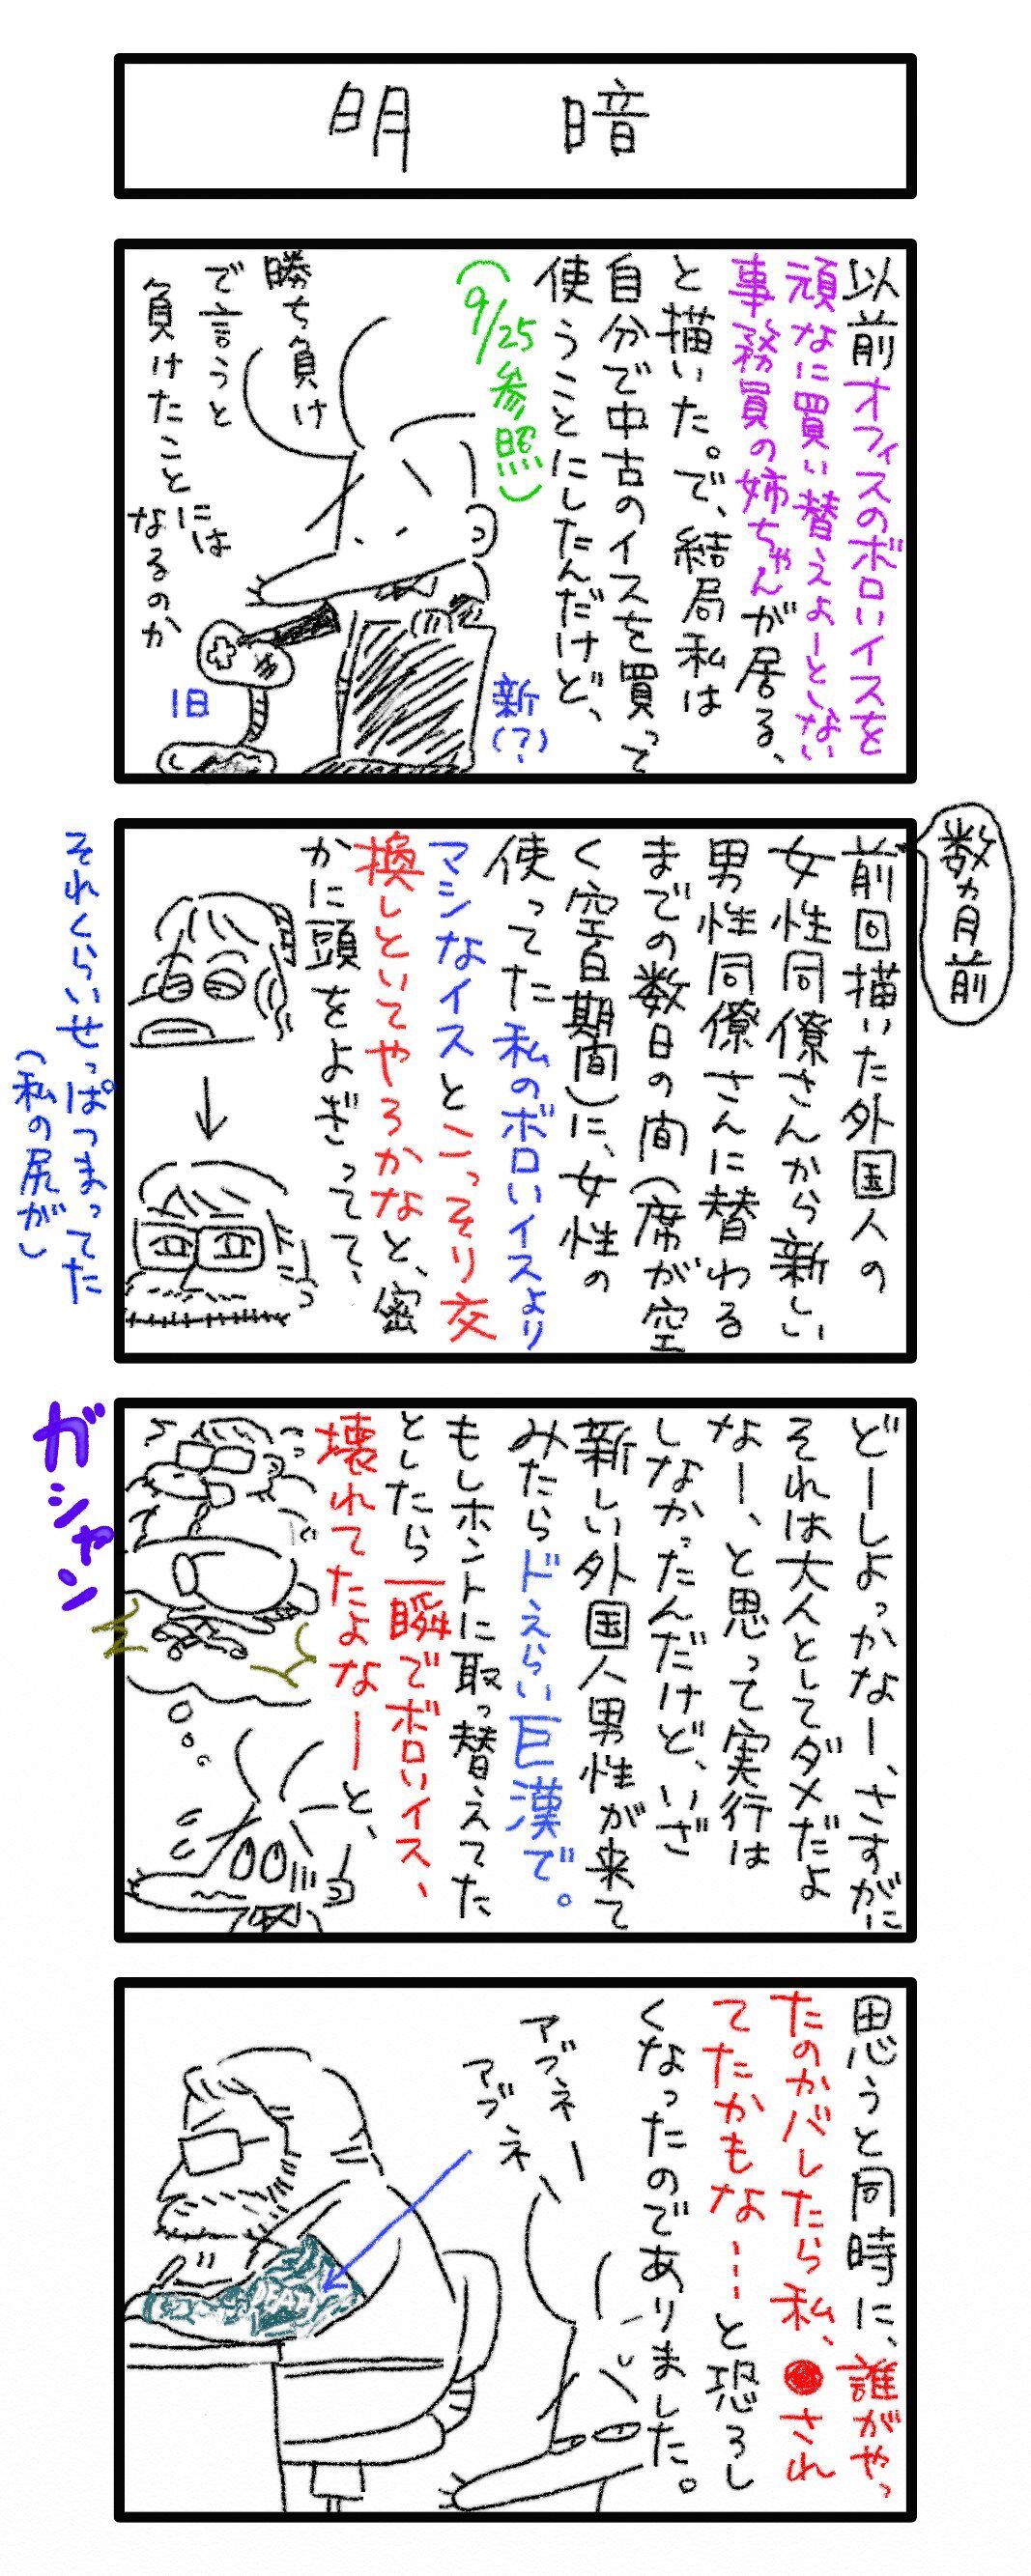 明暗
以前オフィスのボロいイスを
頑なに買い替えよーとしない
事務員の姉ちゃんが居る、
と描いた。で、結局私は
自分で中古のイスを買って
使うことにしたんだけど、
(9/25参照)
勝ち負け
で言うと
負けたことには
なるのか
新(?)
旧
数カ月前
前回描いた外国人の
女性同僚さんから新しい
男性同僚さんに替わる
までの数日の間(席が空
く空白期間)に、女性の
使ってた私のボロいイスより
マシなイスとこっそり交
換しといてやろかなと、密
かに頭をよぎってて、
それくらいせっぱつまってた
(私の尻が)
どーしよっかなー、さすがに
それは大人としてダメだよ
なー、と思って実行は
しなかったんだけど、いざ
新しい外国人男性が来て
みたらドえらい巨漢で。
もしホントに取っ替えてた
としたら一瞬でボロいイス、
壊れてたよなーと、
ガシャン
思うと同時に、誰がやっ
たのかバレたら私、●され
てたかもな……と恐ろし
くなったのでありました。
アブネー
アブネー